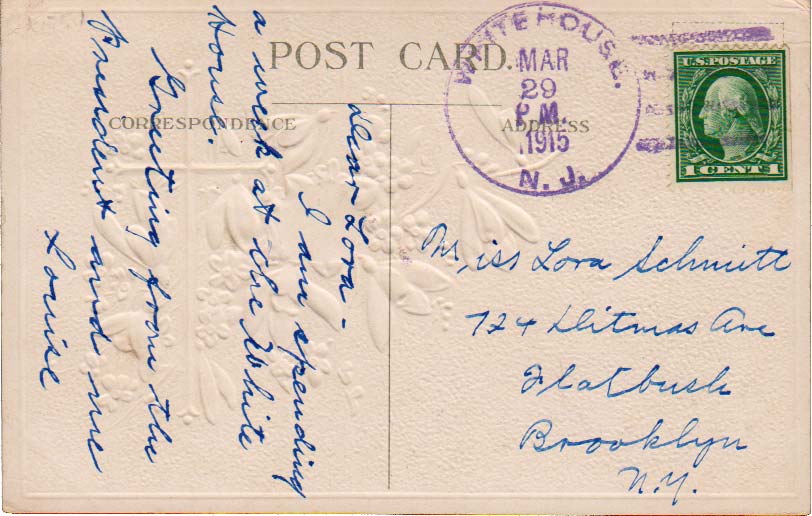 POST CARD.
CORRESPONDENCE
ADDRESS
WHITEHOUSE.
MAR
29
P.M.
1915
N. J.
U.S. POSTAGE
1 CENT 1
Dear Lora -
I am spending
a week at the White
House.
Greeting from the
President and me
Louise
Miss Lora Schmitt
724 Ditmas Ave
Flatbush
Brooklyn
N.Y.